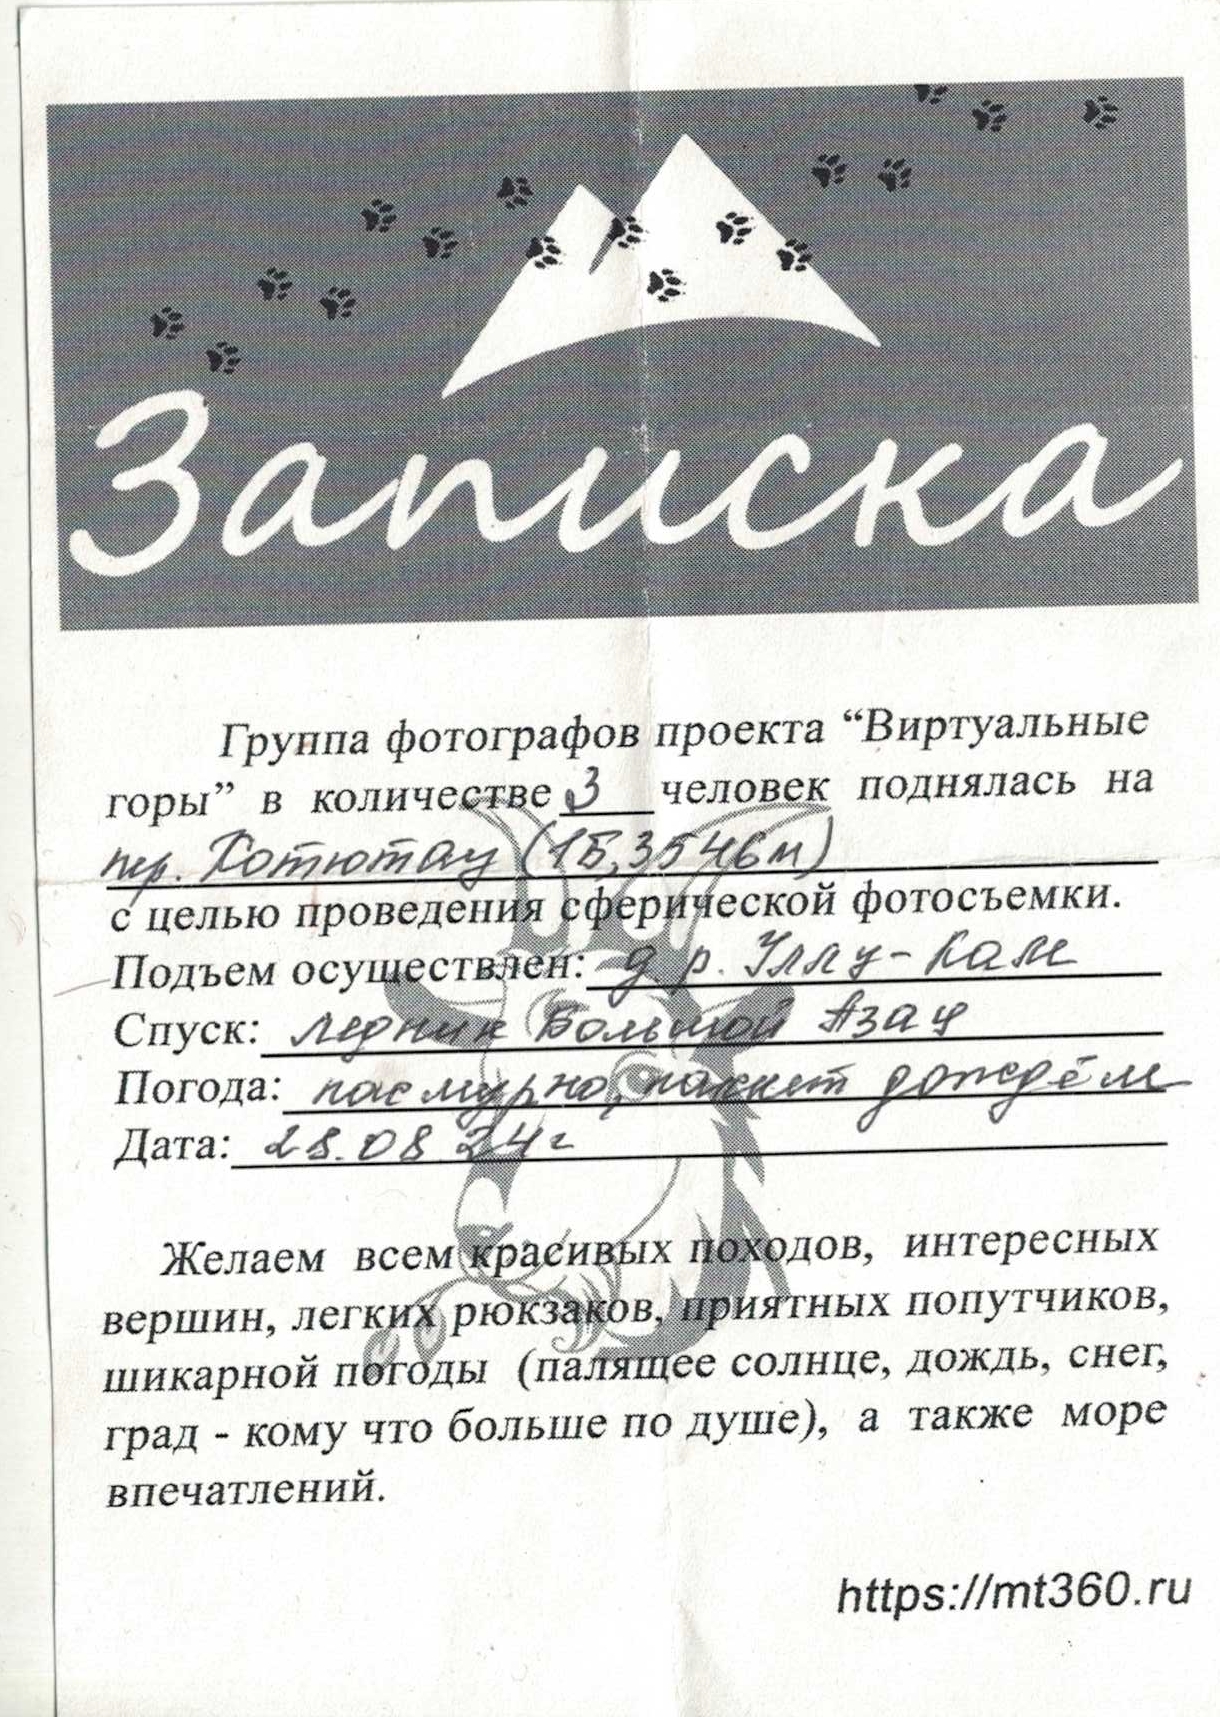 Записка
Группа фотографов проекта “Виртуальные
горы” в количестве 3 человек поднялась на
пер. Хотютау (1Б, 3546м)
с целью проведения сферической фотосъемки.
Подъем осуществлен: д р. Уллу-Кам
Спуск: ледник Большой Азау
Погода: пасмурно, пахнет дождём
Дата: 28.08 24г
Желаем всем красивых походов, интересных
вершин, легких рюкзаков, приятных попутчиков,
шикарной погоды (палящее солнце, дождь, снег,
град - кому что больше по душе), а также море
впечатлений.
https://mt360.ru